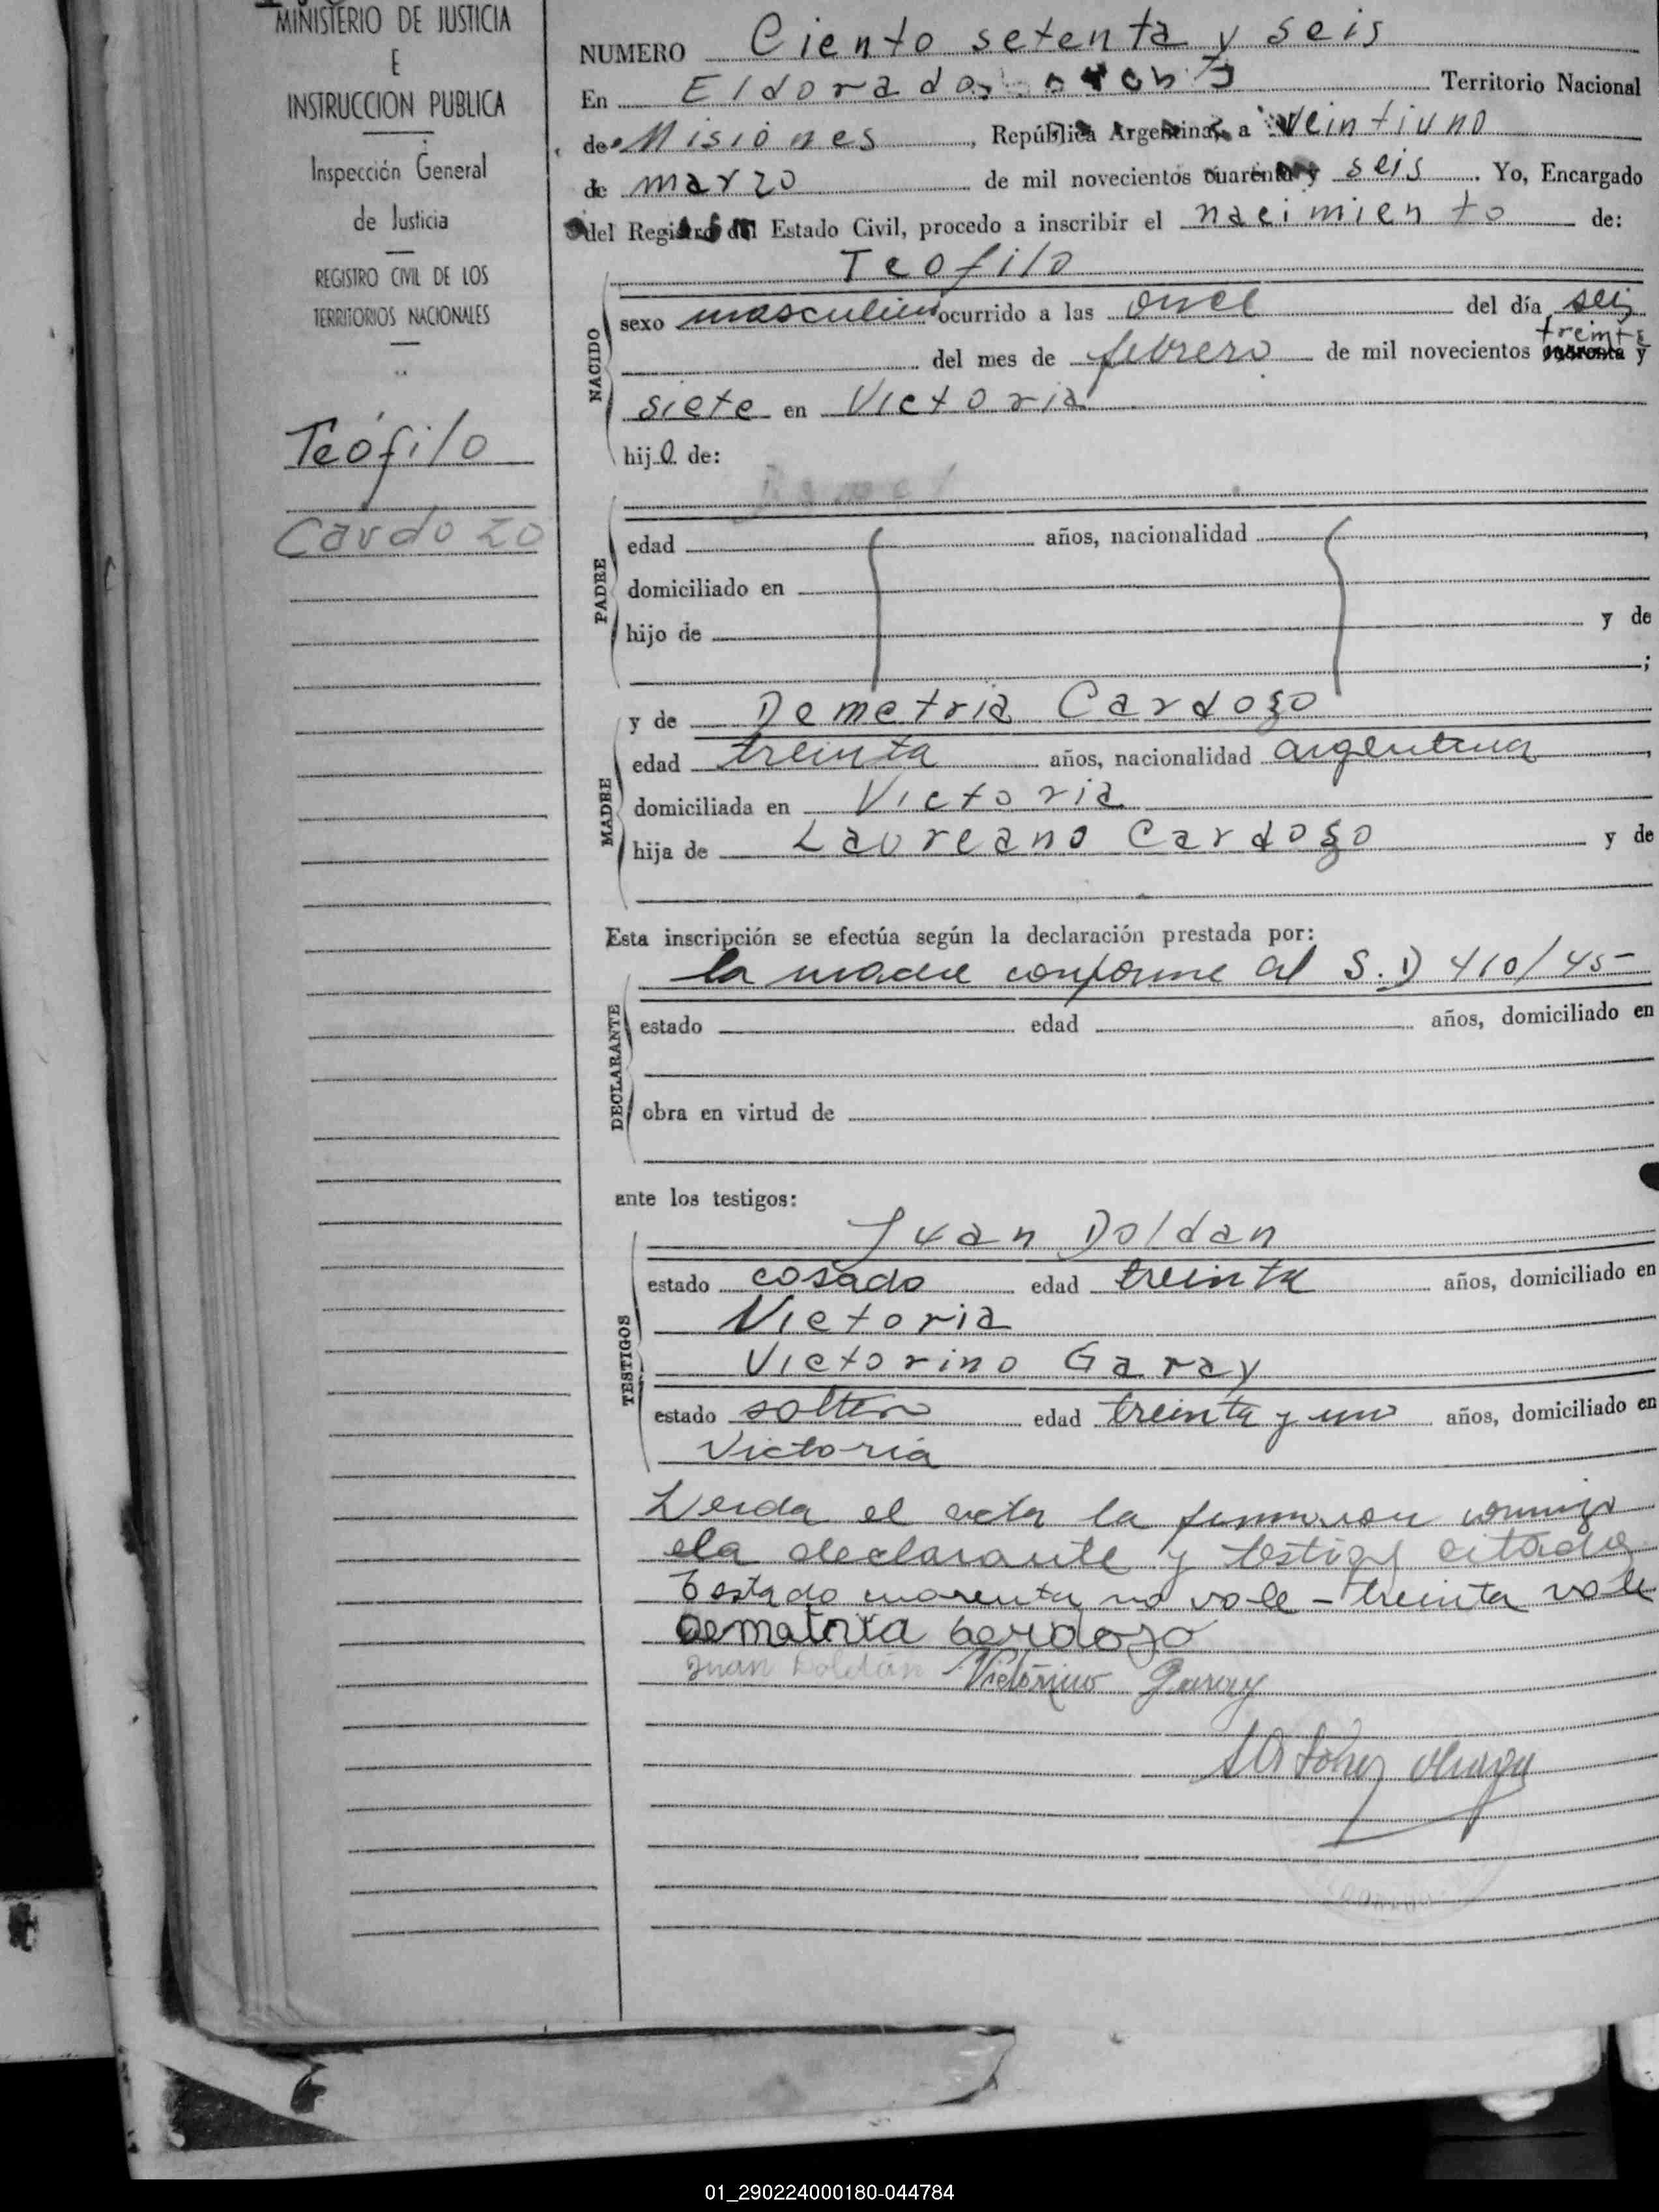 MINISTERIO DE JUSTICIA
E
INSTRUCCION PUBLICA
Inspección General
de Justicia
REGISTRO CIVIL DE LOS
TERRITORIOS NACIONALES
Teófilo
Cardozo
NUMERO Ciento setenta y seis
En Eldorado, Territorio Nacional
de Misiones, República Argentina, a Veintiuno
de marzo de mil novecientos cuarenta y seis. Yo, Encargado
del Registro del Estado Civil, procedo a inscribir el nacimiento de:
Teofilo
NACIDO
sexo masculino ocurrido a las once del día seis
treinta
del mes de febrero de mil novecientos cuarenta y
siete en Victoria
hijo de:
PADRE
edad años, nacionalidad ,
domiciliado en
hijo de y de
;
MADRE
y de Demetria Cardozo
edad treinta años, nacionalidad argentina,
domiciliada en Victoria
hija de Laureano Cardozo y de
Esta inscripción se efectúa según la declaración prestada por:
DECLARANTE
la madre conforme al S.D 410/45-
estado edad años, domiciliado en
obra en virtud de
ante los testigos:
TESTIGOS
Juan Doldan
estado cosado edad treinta años, domiciliado en
Victoria
Victorino Garay
estado soltero edad treinta y uno años, domiciliado en
Victoria
Leida el acta la firmaron conmigo
la declarante y testigos citados
Testado cuarenta no vale - treinta vale
Dematria Cardozo
Juan Doldán Victorino Garay
01_290224000180-044784